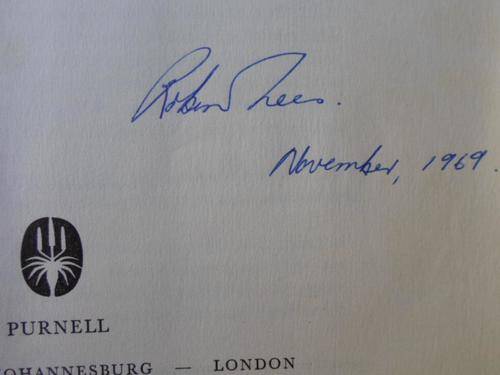 Robin Lees.
November, 1969.
PURNELL
JOHANNESBURG — LONDON